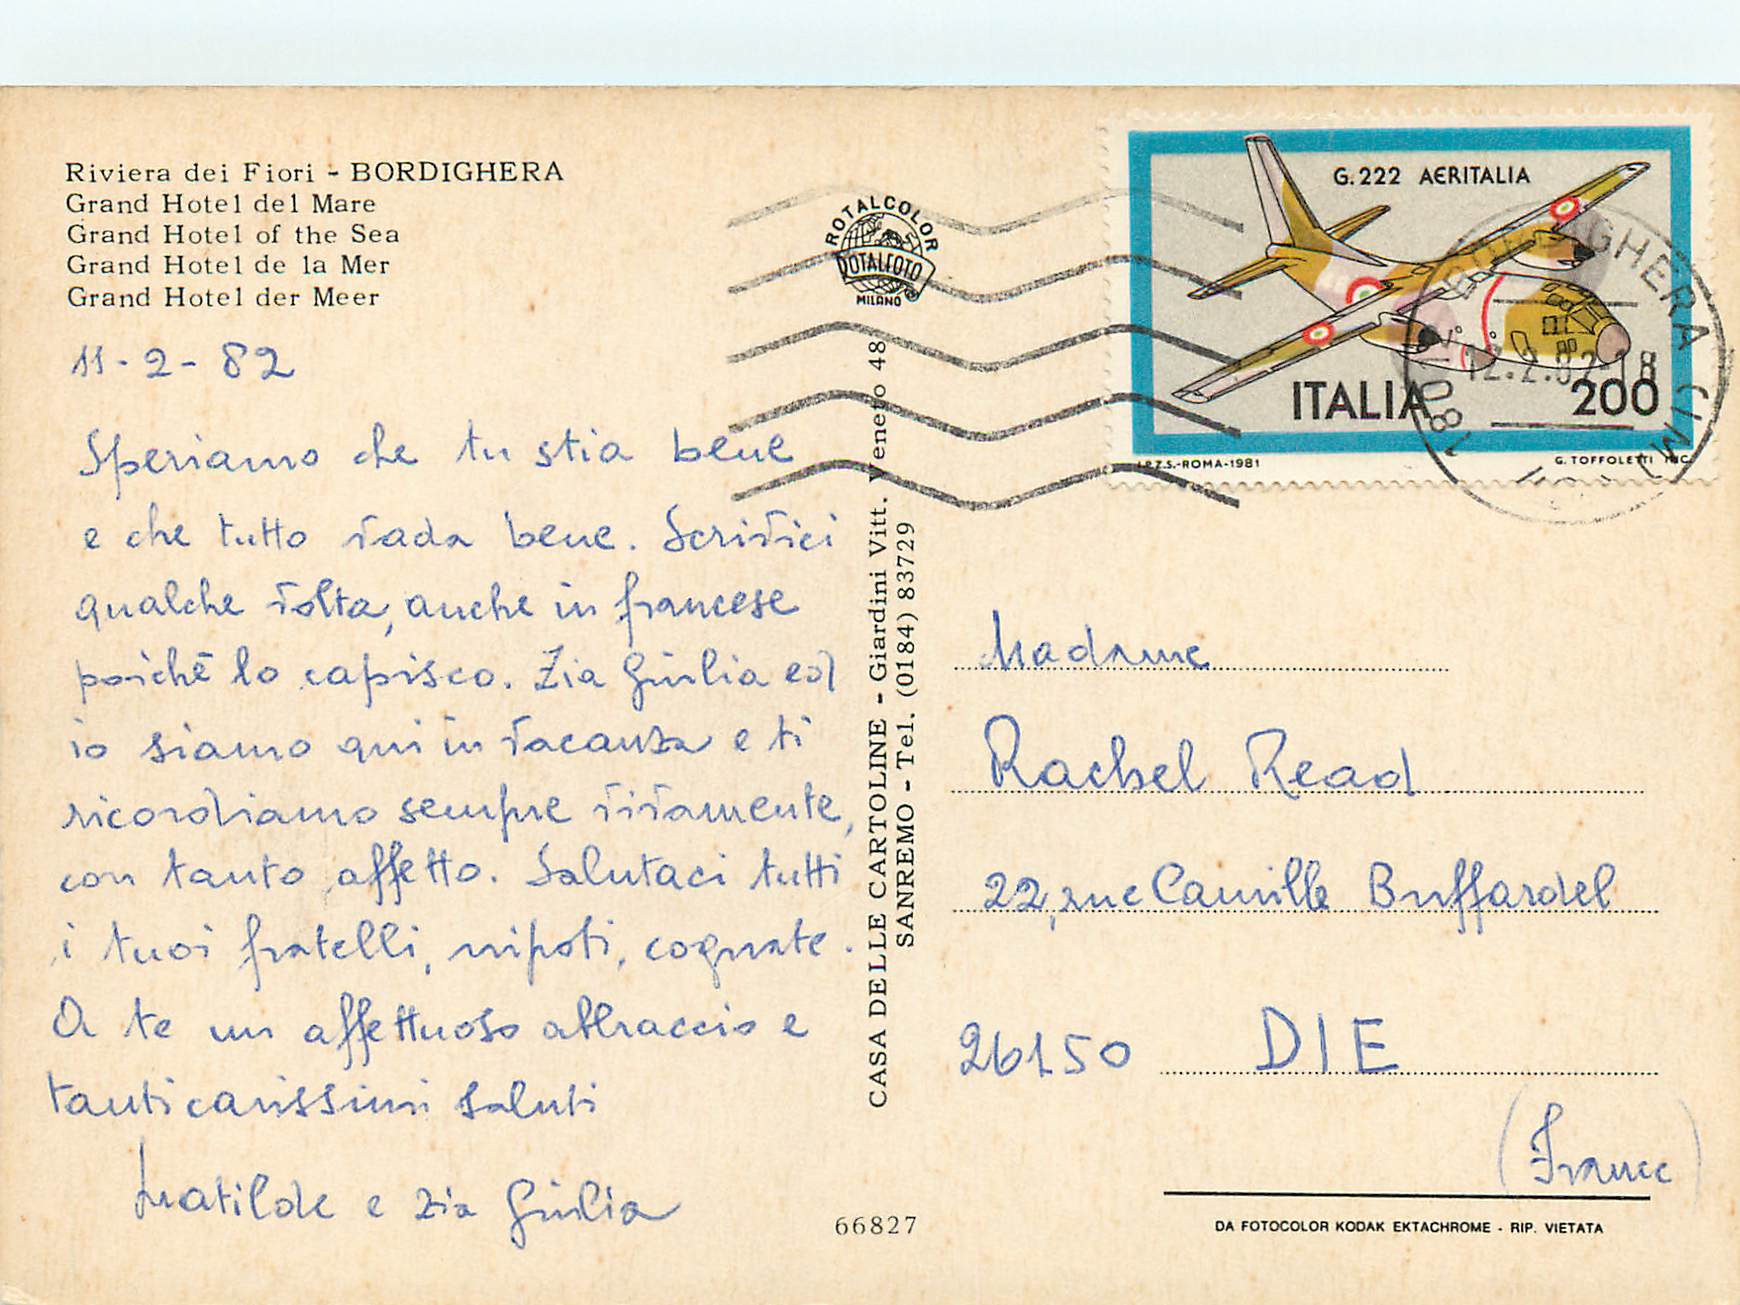 Riviera dei Fiori - BORDIGHERA
Grand Hotel del Mare
Grand Hotel of the Sea
Grand Hotel de la Mer
Grand Hotel der Meer
11-2-82
Speriamo che tu stia bene
e che tutto vada bene. Scrivici
qualche volta, anche in francese
poichè lo capisco. Zia Giulia ed
io siamo qui in vacanza e ti
ricordiamo sempre vivamente,
con tanto affetto. Salutaci tutti
i tuoi fratelli, nipoti, cognate.
A te un affettuoso abbraccio e
tanti carissimi saluti
Matilde e zia Giulia
ROTALCOLOR
ROTALFOTO
MILANO
CASA DELLE CARTOLINE - Giardini Vitt. Veneto 48
SANREMO - Tel. (0184) 83729
66827
G.222 AERITALIA
ITALIA 200
I.P.Z.S.-ROMA-1981
G. TOFFOLETTI INC.
BORDIGHERA (IM)
12.2.82-18
Madame
Rachel Read
22, rue Camille Buffardel
26150 DIE
(France)
DA FOTOCOLOR KODAK EKTACHROME - RIP. VIETATA